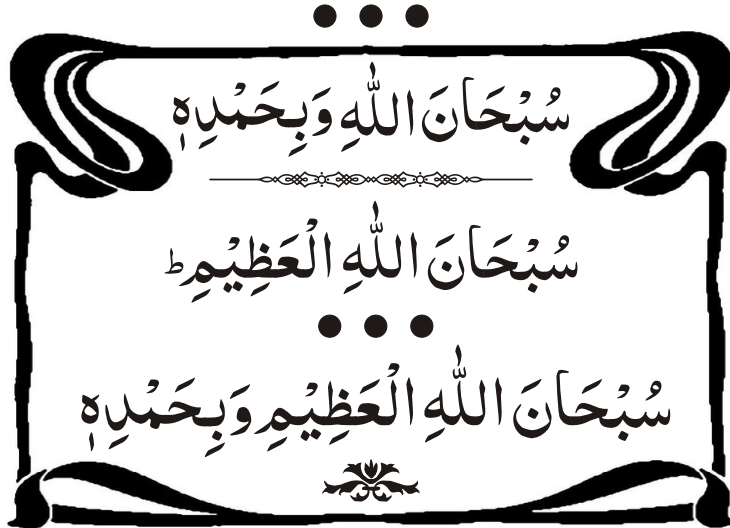 سُبْحَانَ اللّٰهِ وَبِحَمْدِهٖ
سُبْحَانَ اللّٰهِ الْعَظِيْمِ ؕ
سُبْحَانَ اللّٰهِ الْعَظِيْمِ وَبِحَمْدِهٖ